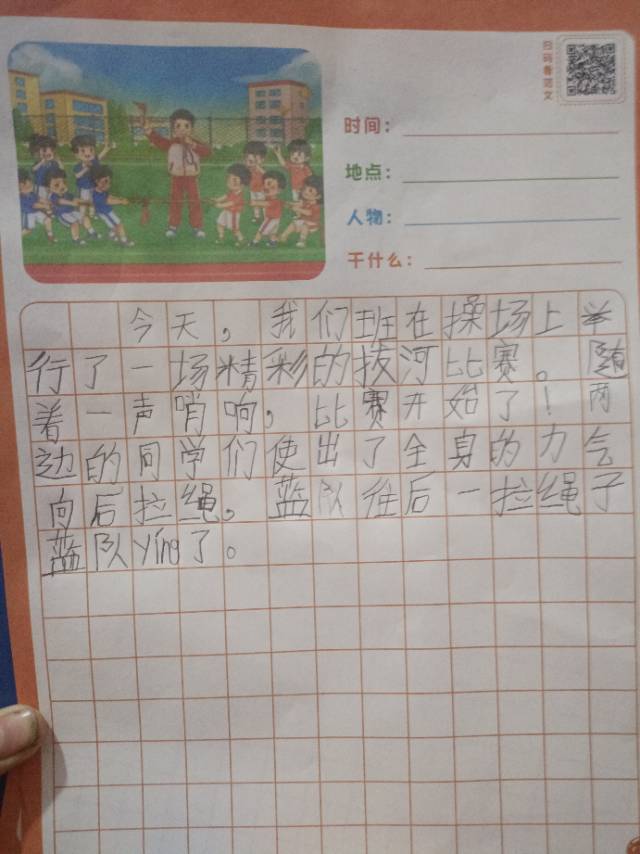 扫码看范文
时间：
地点：
人物：
干什么：
今天，我们班在操场上举
行了一场精彩的拔河比赛。随
着一声哨响，比赛开始了！两
边的同学们使出了全身的力气
向后拉绳。蓝队往后一拉绳子
蓝队yíng了。